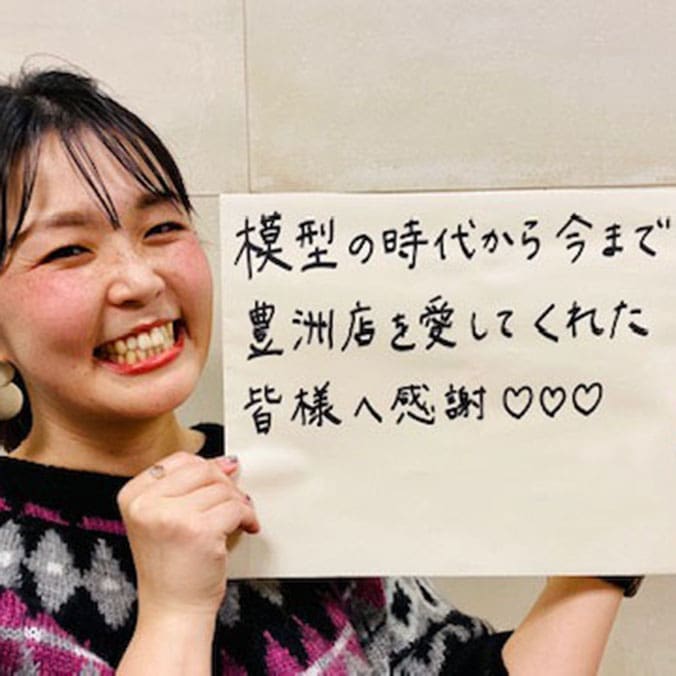 模型の時代から今まで
豊洲店を愛してくれた
皆様へ感謝♡♡♡